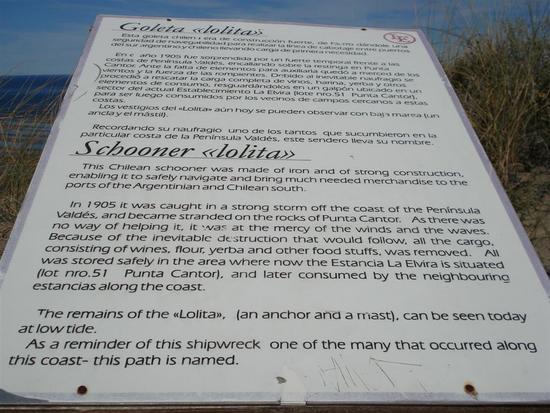 Goleta «lolita»
Esta goleta chilena era de construcción fuerte, de fierro dándole una
seguridad de navegabilidad para realizar la línea de cabotaje entre puertos
del sur argentino y chileno llevando carga de primera necesidad.
En el año 1905 fue sorprendida por un fuerte temporal frente a las
costas de Península Valdés, encallando sobre la restinga en Punta
Cantor. Ante la falta de elementos para auxiliarla quedó a merced de los
vientos y la fuerza de las rompientes. Debido al inevitable naufragio se
procedió a rescatar la carga completa de vinos, harina, yerba y otros
elementos de consumo, resguardándolos en un galpón ubicado en un
sector del actual Establecimiento La Elvira (lote nro.51 Punta Cantor),
para ser luego consumidos por los vecinos de campos cercanos a estas
costas.
Los vestigios del «Lolita» aún hoy se pueden observar con baja marea (un
ancla y el mástil).
Recordando su naufragio uno de los tantos que sucumbieron en la
particular costa de la Península Valdés, este sendero lleva su nombre.
Schooner «lolita»
This Chilean schooner was made of iron and of strong construction,
enabling it to safely navigate and bring much needed merchandise to the
ports of the Argentinian and Chilean south.
In 1905 it was caught in a strong storm off the coast of the Península
Valdés, and became stranded on the rocks of Punta Cantor. As there was
no way of helping it, it was at the mercy of the winds and the waves.
Because of the inevitable destruction that would follow, all the cargo,
consisting of wines, flour, yerba and other food stuffs, was removed. All
was stored safely in the area where now the Estancia La Elvira is situated
(lot nro.51 Punta Cantor), and later consumed by the neighbouring
estancias along the coast.
The remains of the «Lolita», (an anchor and a mast), can be seen today
at low tide.
As a reminder of this shipwreck one of the many that occurred along
this coast- this path is named.